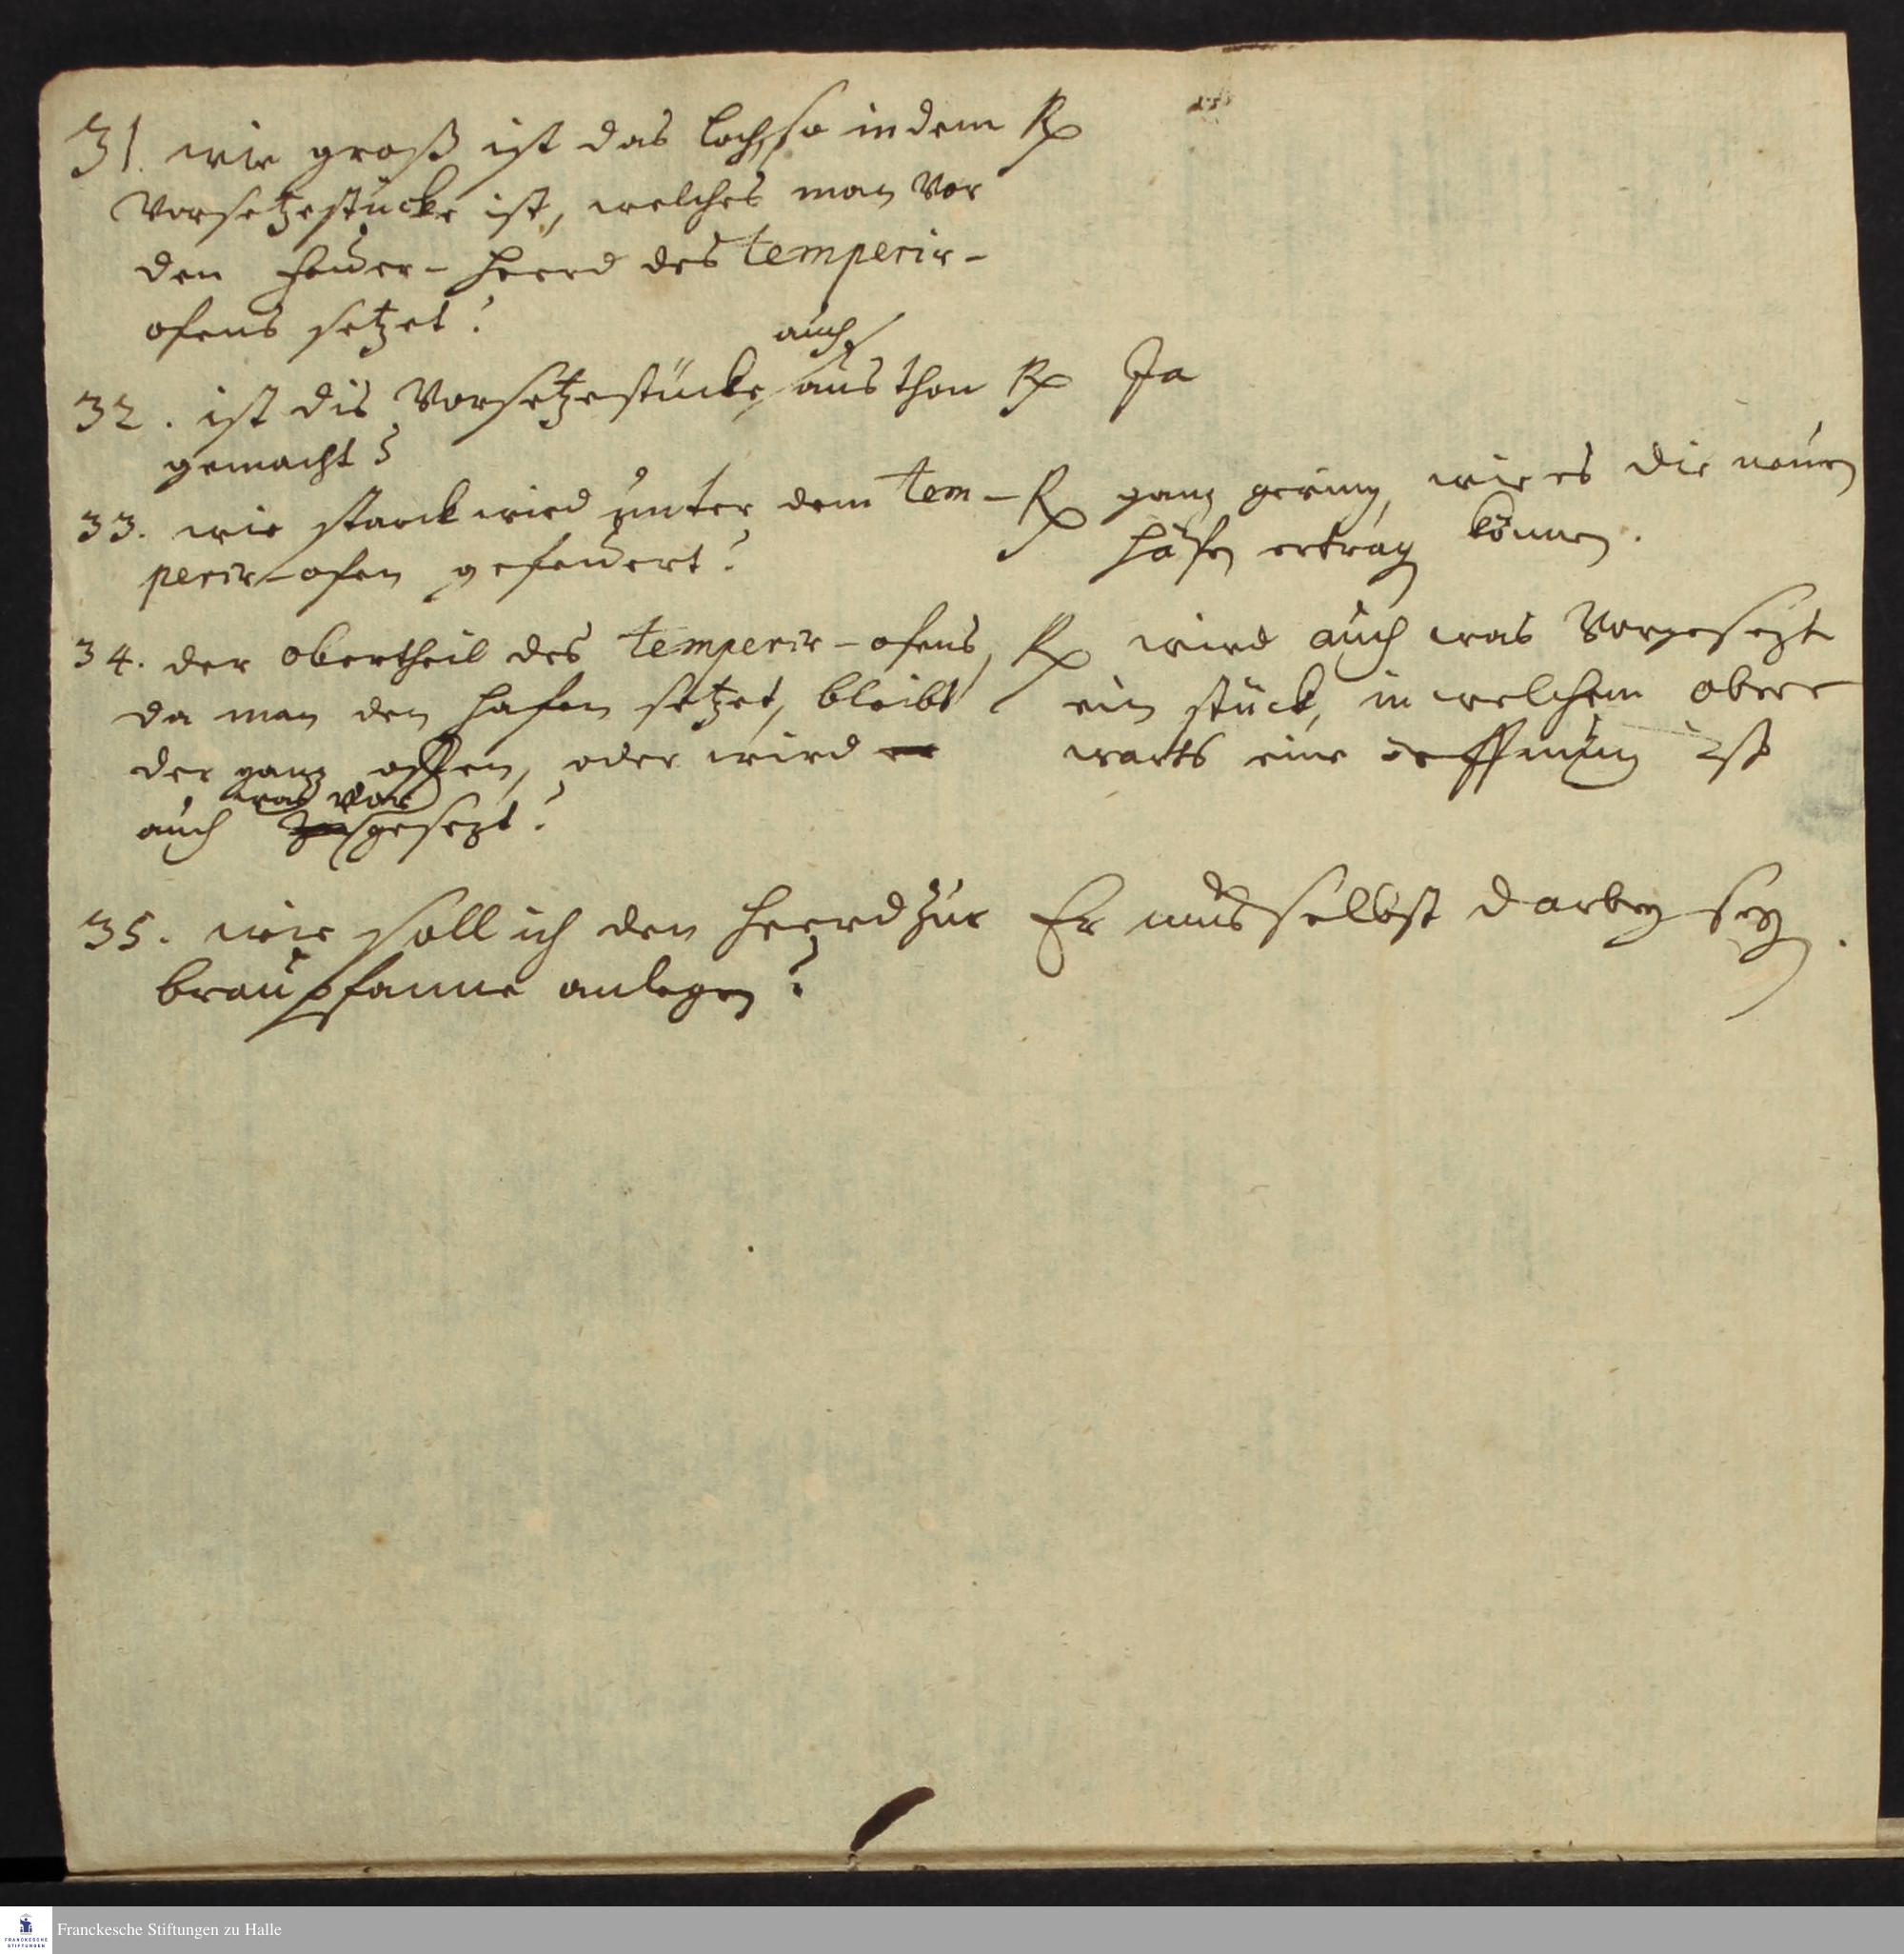 31. wie groß ist das loch, so in dem Rp
Vorsetzestücke ist, welches man vor
den feuer-heerd des temperir-
ofens setzet?
32. ist dis Vorsetzestücke auch aus thon
gemacht?
Rp Ja
33. wie starck wird unter dem tem-
perir-ofen gefeuert?
Rp ganz gering, wie es die neuen
häfen ertragen können.
34. der obertheil des temperir-ofens,
da man den hafen setzet, bleibt
der ganz offen, oder wird er
auch was vor gesezt?
Rp wird auch was vorgesezt
ein stück, in welchem obere
warts eine oeffnung ist
35. wie soll ich den heerd zur
braupfanne anlegen?
Er mus selbst darbey sey.
Franckesche Stiftungen zu Halle
FRANCKESCHE
STIFTUNGEN